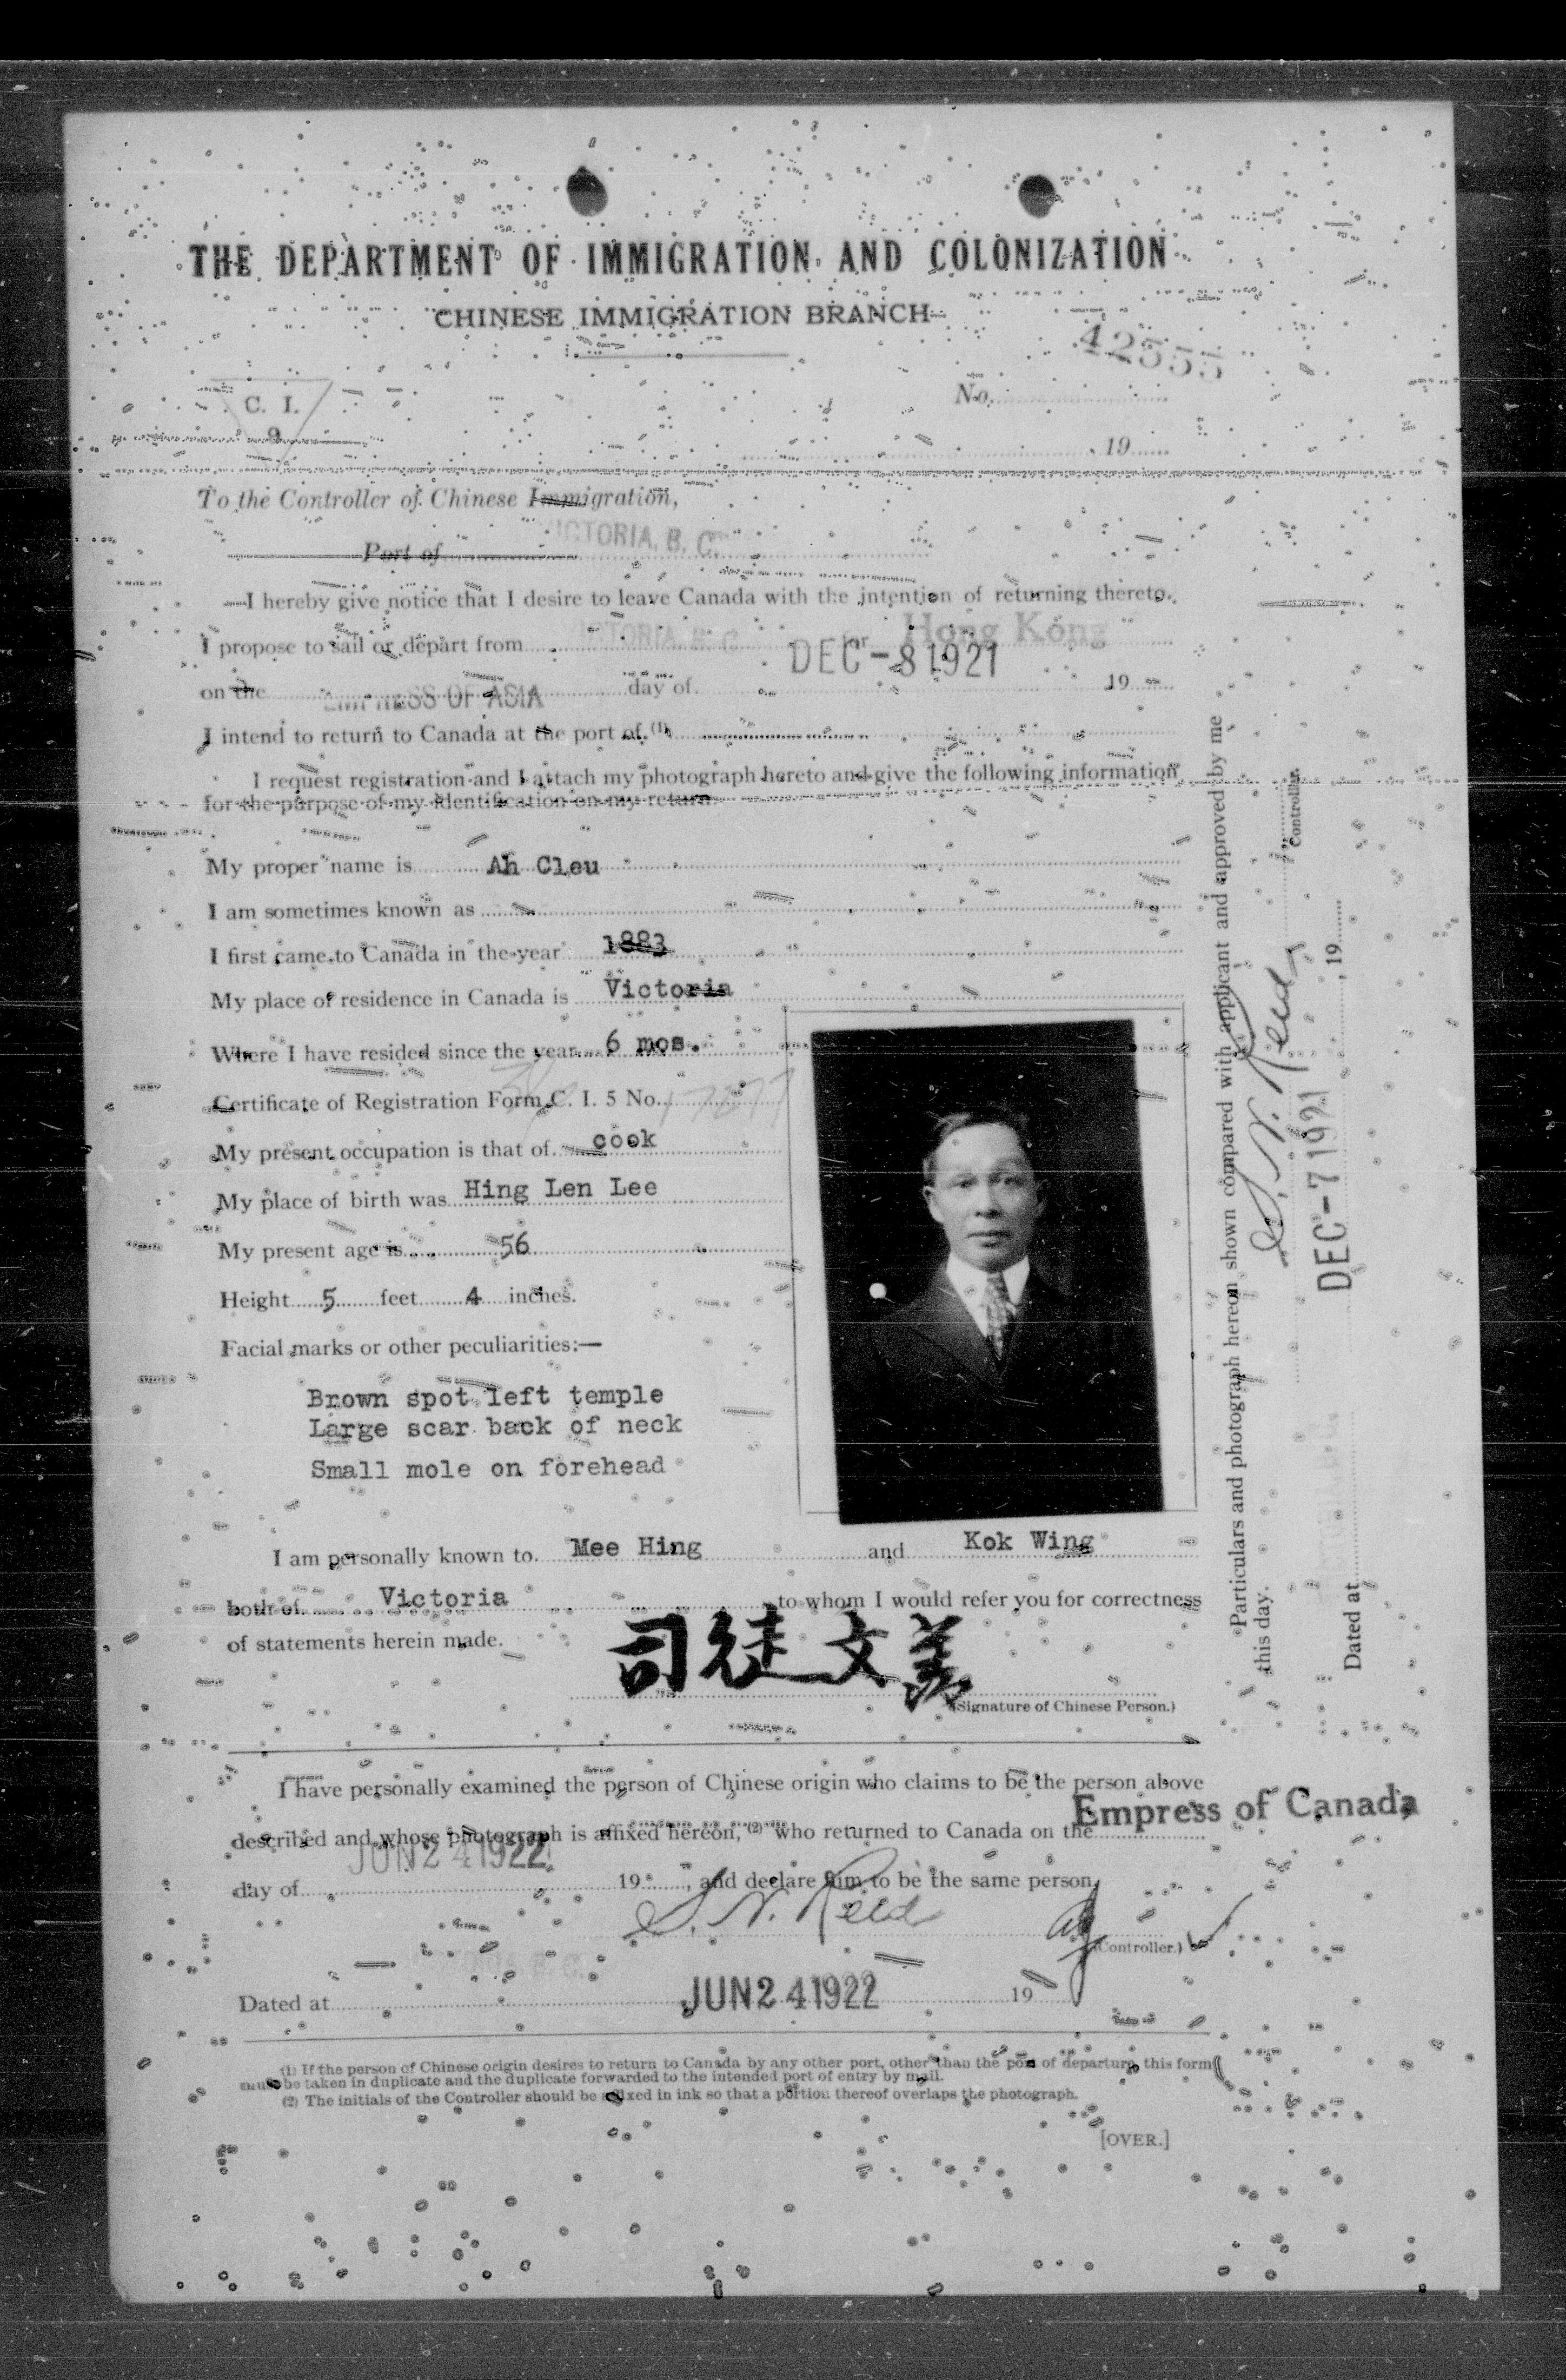 THE DEPARTMENT OF IMMIGRATION AND COLONIZATION
CHINESE IMMIGRATION BRANCH
42555
No.
C. I.
9
19
To the Controller of Chinese Immigration,
VICTORIA, B. C.
Port of
I hereby give notice that I desire to leave Canada with the intention of returning thereto.
I propose to sail or depart from VICTORIA, B. C. for Hong Kong
DEC -8 1921
on the EMPRESS OF ASIA day of 19
I intend to return to Canada at the port of (1)
I request registration and I attach my photograph hereto and give the following information
for the purpose of my identification on my return
My proper name is Ah Cleu
I am sometimes known as
I first came to Canada in the year 1883
My place of residence in Canada is Victoria
Where I have resided since the year 6 mos.
Certificate of Registration Form C. I. 5 No.
My present occupation is that of cook
My place of birth was Hing Len Lee
My present age is 56
Height 5 feet 4 inches.
Facial marks or other peculiarities:—
Brown spot left temple
Large scar back of neck
Small mole on forehead
I am personally known to Mee Hing and Kok Wing
both of Victoria to whom I would refer you for correctness
of statements herein made.
司徒文義
(Signature of Chinese Person.)
Particulars and photograph hereon shown compared with applicant and approved by me
this day.
S. N. Reid
Controller.
DEC -7 1921
Dated at , 19
I have personally examined the person of Chinese origin who claims to be the person above
Empress of Canada
described and whose photograph is affixed hereon, (2) who returned to Canada on the
JUN 24 1922
day of 19 , and declare him to be the same person.
S. N. Reid
(Controller.)
Dated at JUN 24 1922 19
(1) If the person of Chinese origin desires to return to Canada by any other port, other than the port of departure, this form
must be taken in duplicate and the duplicate forwarded to the intended port of entry by mail.
(2) The initials of the Controller should be affixed in ink so that a portion thereof overlaps the photograph.
[OVER.]